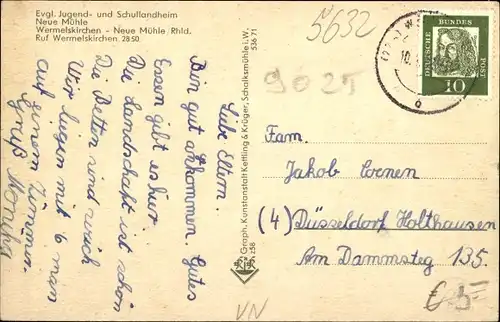 Evgl. Jugend- und Schullandheim
Neue Mühle
Wermelskirchen - Neue Mühle, Rhld.
Ruf Wermelskirchen 28 50
5632
9025
DEUTSCHE BUNDESPOST
10
Liebe Eltern.
Bin gut ankommen. Gutes
Essen gibt es hier.
Die Landschaft ist schön
Die Betten sind weich
Wir liegen mit 6 man
auf einem Zimmer.
Gruß Monika
Graph. Kunstanstalt Kettling & Krüger, Schalksmühle i.W.
536 71
258
Fam.
Jakob
(4) Düsseldorf Holthausen
Am Dammsteg 135.
VN
€ 5,-